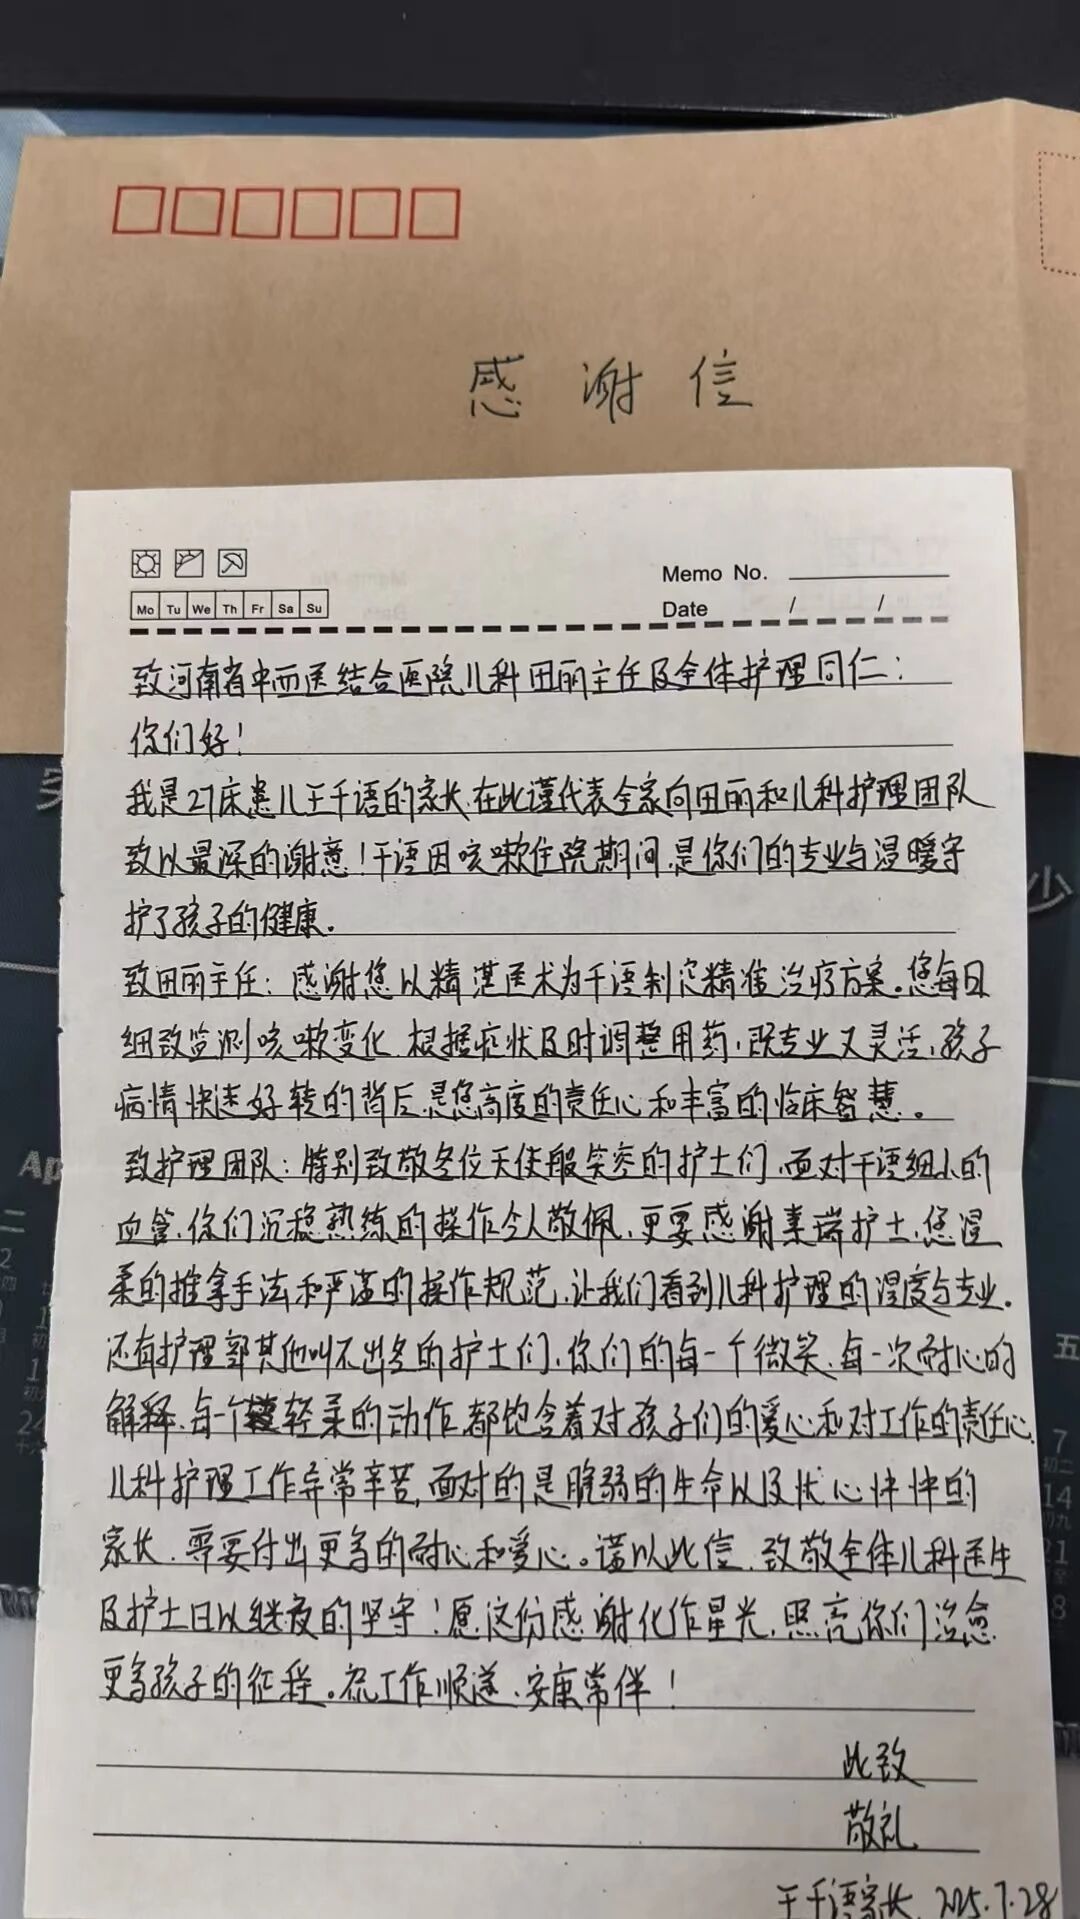 感谢信
Memo No.
Mo Tu We Th Fr Sa Su
Date / /
致河南省中西医结合医院儿科田丽主任及全体护理同仁:
你们好!
我是27床患儿王千语的家长,在此谨代表全家向田丽和儿科护理团队
致以最深的谢意!千语因咳嗽住院期间,是你们的专业与温暖守
护了孩子的健康.
致田丽主任:感谢您以精湛医术为千语制定精准治疗方案。您每日
细致监测咳嗽变化,根据症状及时调整用药,既专业又灵活,孩子
病情快速好转的背后,是您高度的责任心和丰富的临床智慧。
致护理团队:特别致敬各位天使般笑容的护士们,面对千语细小的
血管,你们沉稳熟练的操作令人敬佩,更要感谢素瑞护士,您温
柔的推拿手法和严谨的操作规范,让我们看到儿科护理的温度与专业。
还有护理部其他叫不出名的护士们,你们的每一个微笑,每一次耐心的
解释,每一个轻柔的动作,都饱含着对孩子们的爱心和对工作的责任心.
儿科护理工作异常辛苦,面对的是脆弱的生命以及忧心忡忡的
家长,需要付出更多的耐心和爱心。谨以此信,致敬全体儿科医生
及护士日以继夜的坚守!愿这份感谢化作星光,照亮你们治愈
更多孩子的征程。祝工作顺遂,安康常伴!
此致
敬礼
王千语家长 2025.7.28
Ap
二
五
少
7
初二
14
初九
21